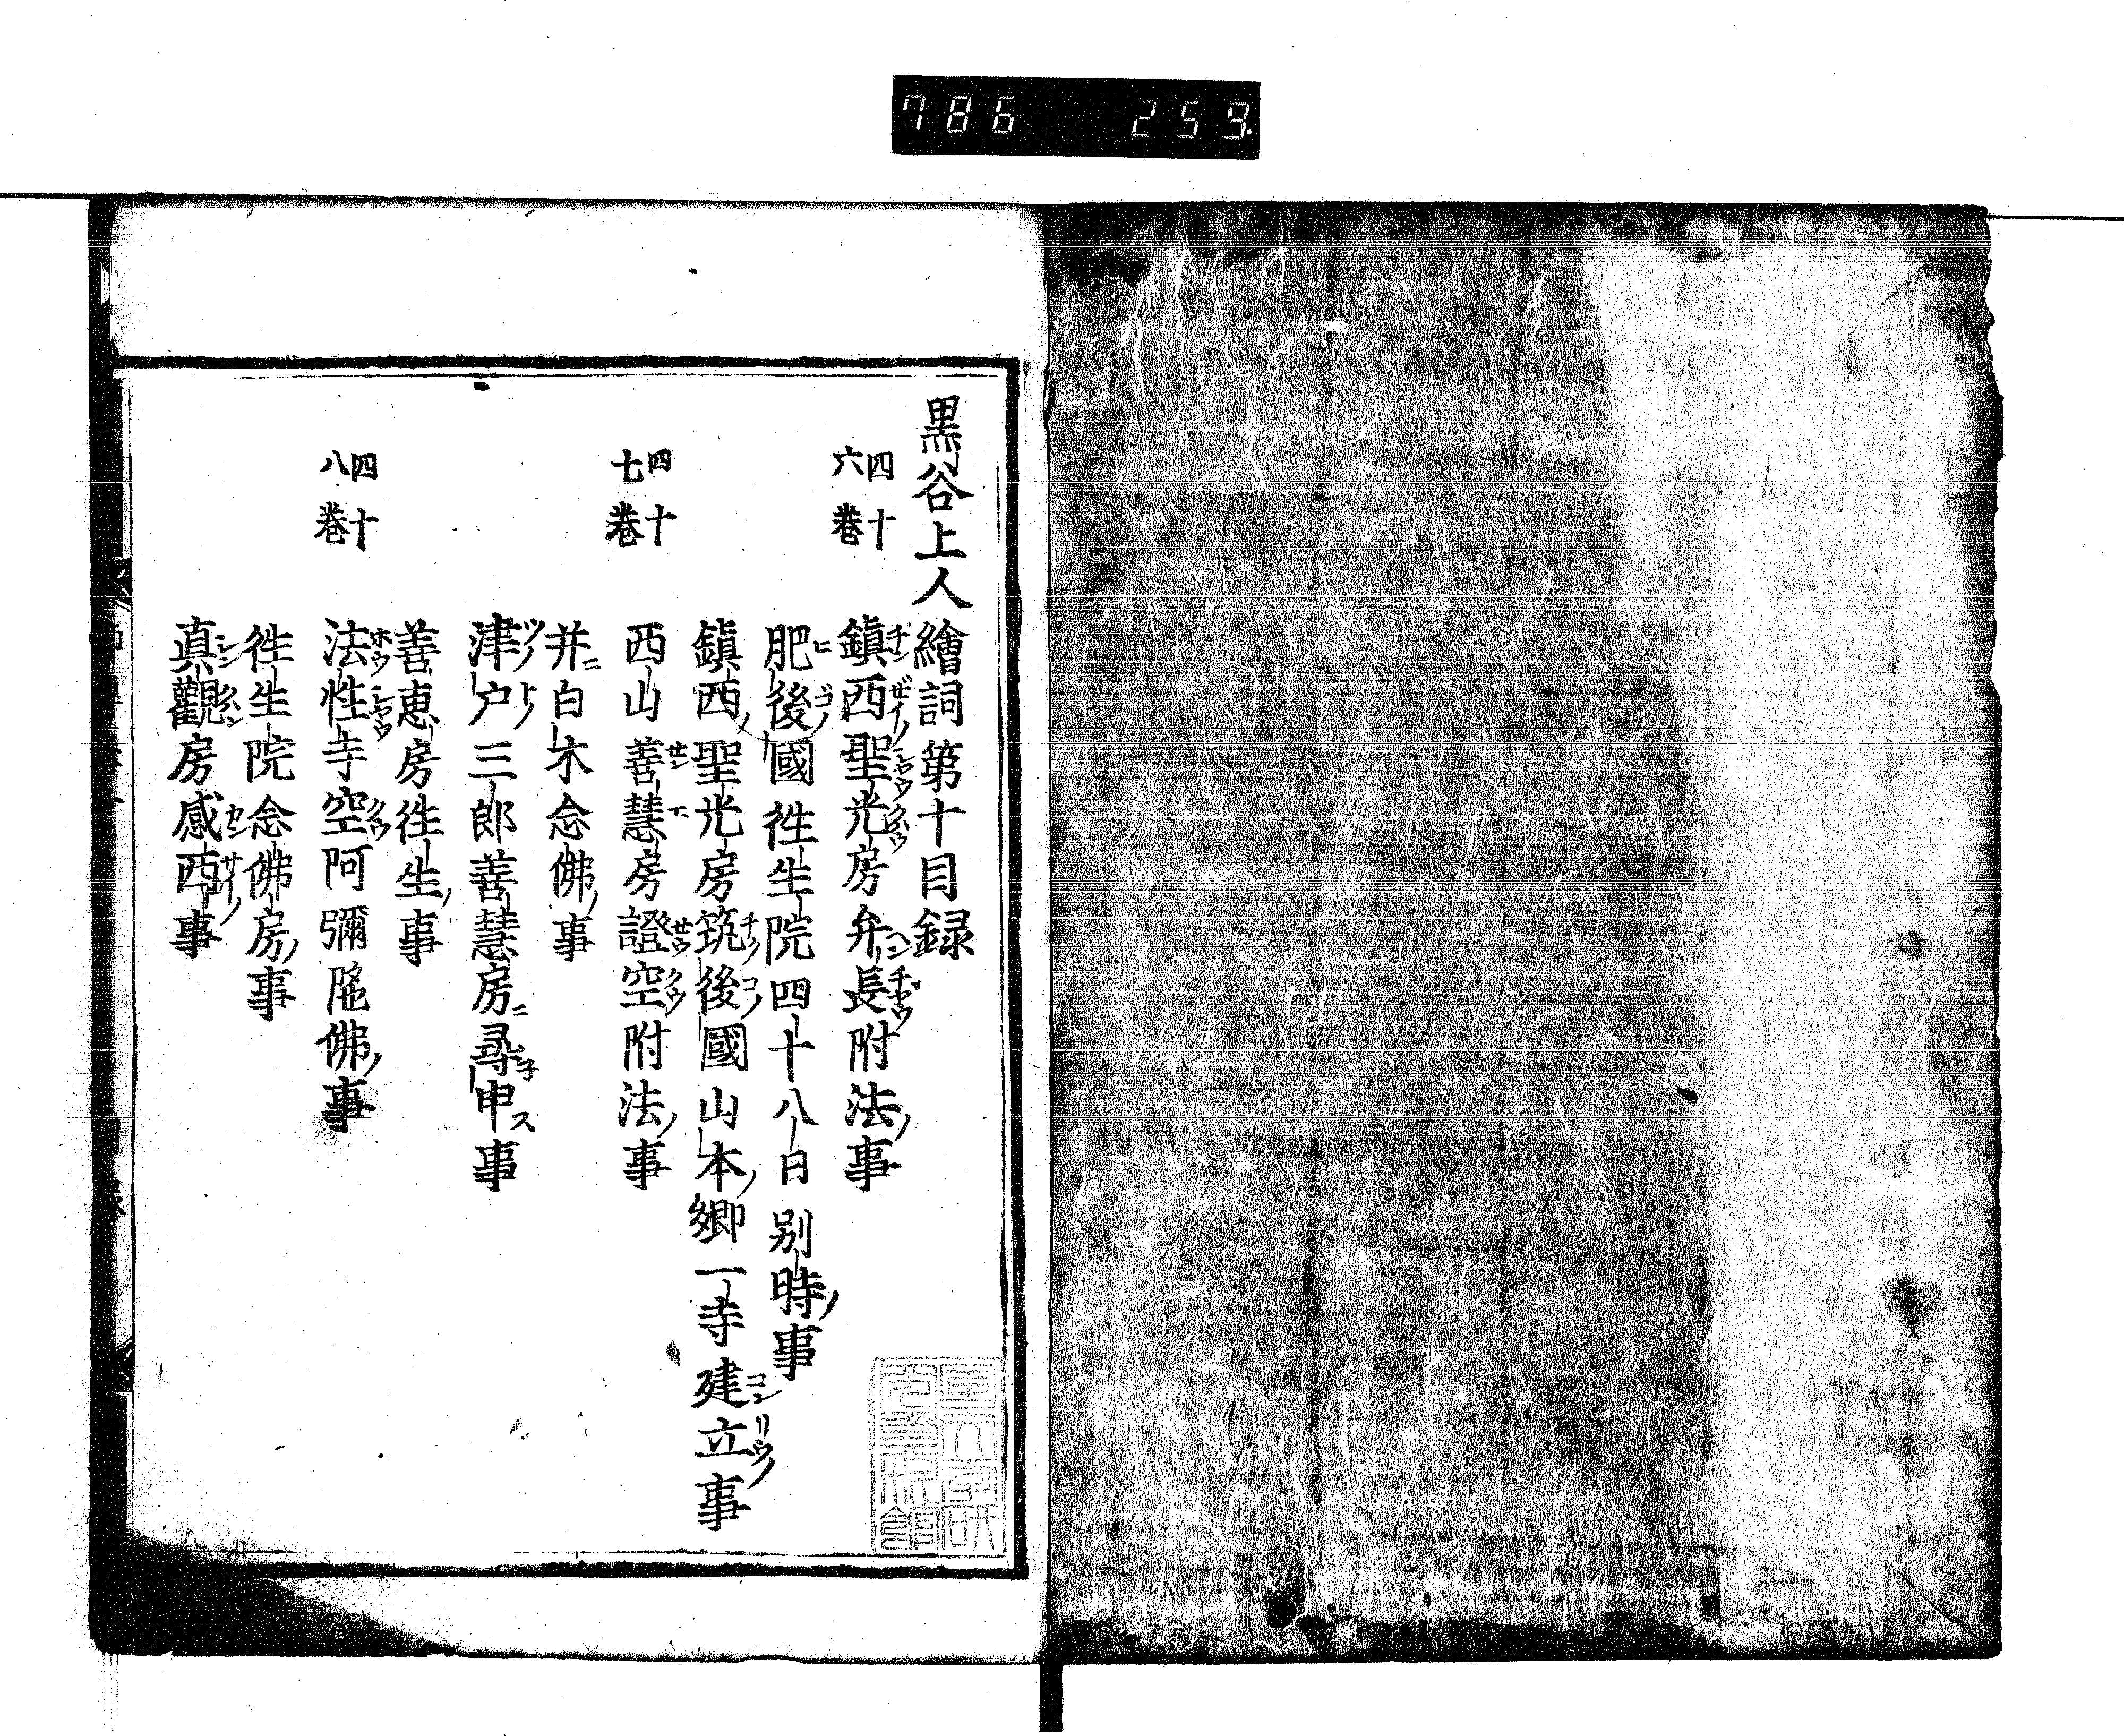 786 259.
黒谷上人繪詞第十目録
四十六巻 鎮西聖光房弁長附法ノ事
肥後國往生院四十八日別時ノ事
鎮西ノ聖光房筑後國山本ノ郷一寺建立事
四十七巻 西山善慧房證空附法ノ事
并ニ白木念佛ノ事
津戸三郎善慧房ニ尋申ス事
善恵房往生ノ事
四十八巻 法性寺空阿彌陀佛ノ事
往生院念佛房ノ事
真觀房感西事